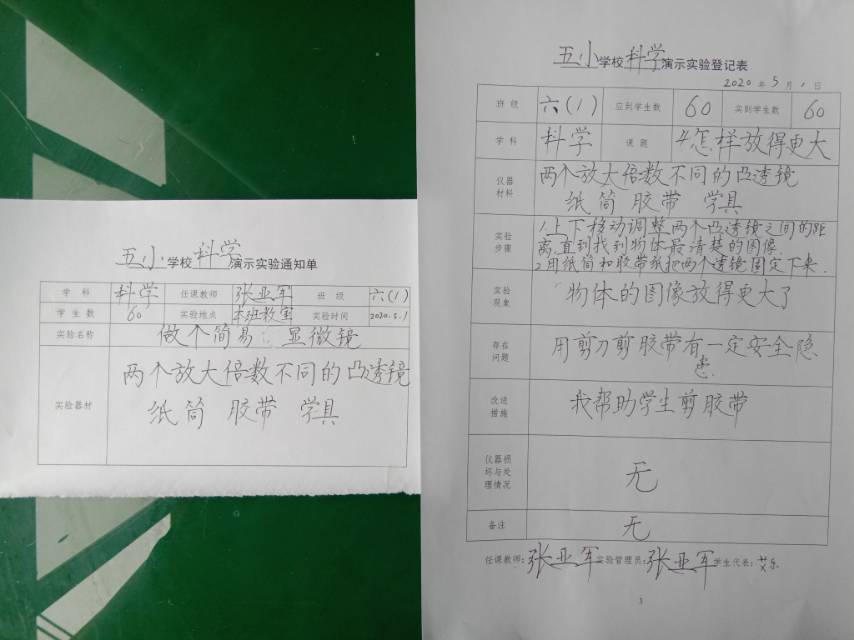 五小学校科学演示实验通知单
学科 科学 任课教师 张亚军 班级 六(1)
学生数 60 实验地点 本班教室 实验时间 2020.5.1
实验名称 做个简易 显微镜
实验器材 两个放大倍数不同的凸透镜
纸筒 胶带 学具
五小学校科学演示实验登记表
2020年5月1日
班级 六(1) 应到学生数 60 实到学生数 60
学科 科学 课题 4怎样放得更大
仪器材料 两个放大倍数不同的凸透镜
纸筒 胶带 学具
实验步骤 1.上下移动调整两个凸透镜之间的距
离,直到找到物体最清楚的图像.
2.用纸筒和胶带纸把两个透镜固定下来.
实验现象 物体的图像放得更大了
存在问题 用剪刀剪胶带有一定安全隐
患.
改进措施 我帮助学生剪胶带
仪器损坏与处理情况 无
备注 无
任课教师:张亚军 实验管理员:张亚军 学生代表:艾乐